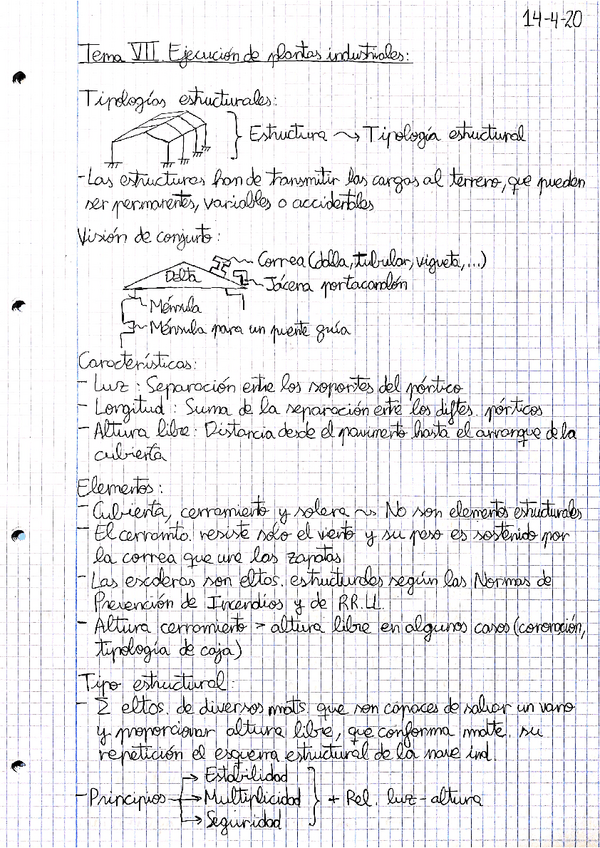 14-4-20
Tema VII. Ejecución de plantas industriales:
Tipologías estructurales:
Estructura ~> Tipología estructural
-Las estructuras han de transmitir las cargas al terreno, que pueden
ser permanentes, variables o accidentales
Visión de conjunto:
Correa (dalla, tubular, vigueta,...)
Delta
Jácena portacanalón
Ménsula
Ménsula para un puente guía
Características:
- Luz: Separación entre los soportes del pórtico
- Longitud: Suma de la separación entre los diftes. pórticos
- Altura libre: Distancia desde el pavimento hasta el arranque de la
cubierta
Elementos:
- Cubierta, cerramiento y solera ~> No son elementos estructurales
- El cerramto. resiste solo el viento y su peso es sostenido por
la correa que une las zapatas
- Las escaleras son eltos. estructurales según las Normas de
Prevención de Incendios y de RR.LL.
- Altura cerramiento > altura libre en algunos casos (coronación,
tipología de caja)
Tipo estructural:
- Σ eltos. de diversos mats. que son capaces de salvar un vano
y proporcionar altura libre, que conforma mdte. su
repetición el esquema estructural de la nave ind.
- Principios → Estabilidad
→ Multiplicidad } + Rel. luz-altura
→ Seguridad